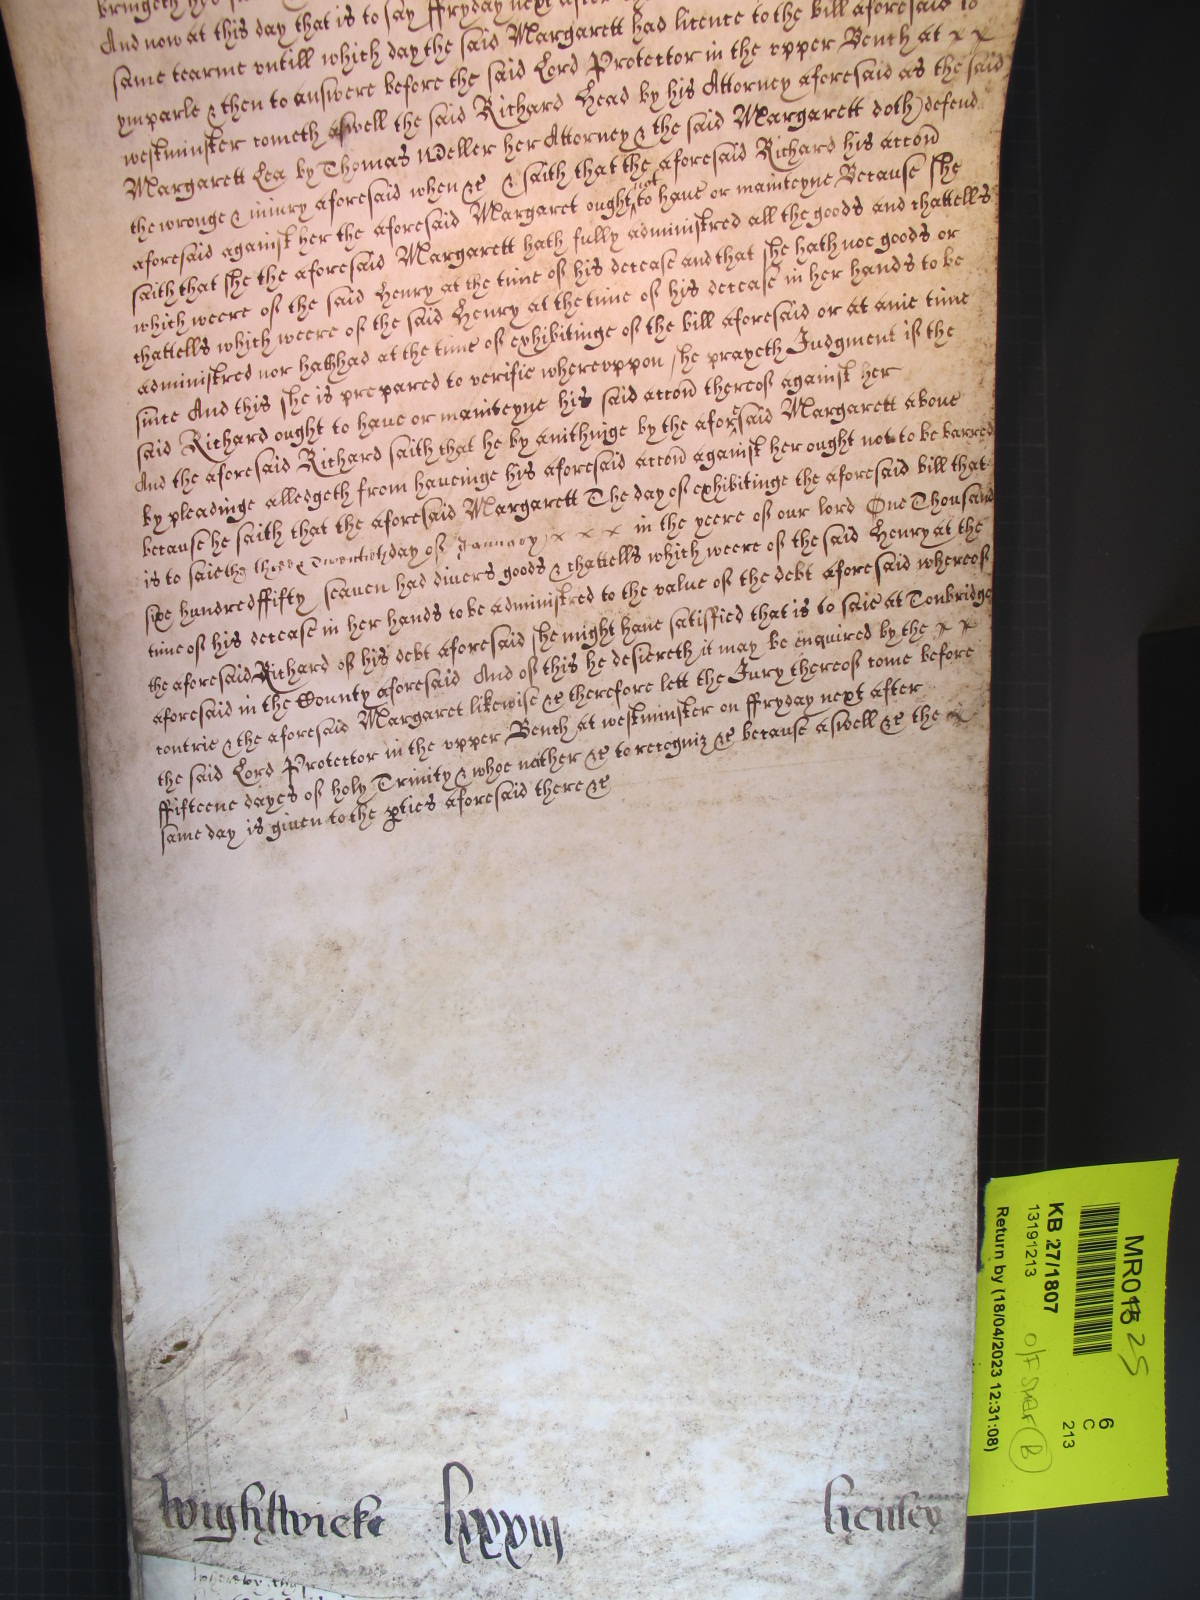 bringeth
And now at this day that is to say ffryday next after
same tearme vntill which day the said Margarett had licence to the bill aforesaid to
ymparle & then to answere before the said Lord Protector in the vpper Bench at x x
westminster cometh aswell the said Richard Head by his Attorney aforesaid as the said
Margarett Lea by Thomas Weller her Attorney & the said Margarett doth defend
the wronge & iniury aforesaid when &c & saith that the aforesaid Richard his accon
aforesaid against her the aforesaid Margaret ought not to haue or mainteyne Because she
saith that she the aforesaid Margarett hath fully administred all the goods and chattells
which weere of the said Henry at the time of his decease and that she hath noe goods or
chattells which weere of the said Henry at the time of his decease in her hands to be
administred nor hath had at the time of exhibitinge of the bill aforesaid or at anie time
since And this she is prepared to verifie wherevppon she prayeth Iudgment if the
said Richard ought to haue or mainteyne his said accon thereof against her
And the aforesaid Richard saith that he by anithinge by the aforesaid Margarett aboue
by pleadinge alledgeth from haueinge his aforesaid accon against her ought not to be barred
because he saith that the aforesaid Margarett The day of exhibitinge the aforesaid bill that
is to saie the three & Twentieth day of January x x x in the yeere of our lord One Thousand
sixe hundred ffifty seauen had diuers goods & chattells which weere of the said Henry at the
time of his decease in her hands to be administred to the value of the debt aforesaid whereof
the aforesaid Richard of his debt aforesaid she might haue satisfied that is to saie at Tonbridge
aforesaid in the County aforesaid And of this he desiereth it may be enquired by the x x
contrie & the aforesaid Margaret likewise &c therefore lett the Iury thereof come before
the said Lord Protector in the vpper Bench at westminster on ffryday next after
ffifteene dayes of holy Trinity & whoe neither &c to recogniz &c because aswell &c the x
same day is giuen to the pties aforesaid there &c
wightwicke lxxxiii henley
MR018 25
6
C
213
KB 27/1807
13191213
O/F
B
Return by (18/04/2023 12:31:08)